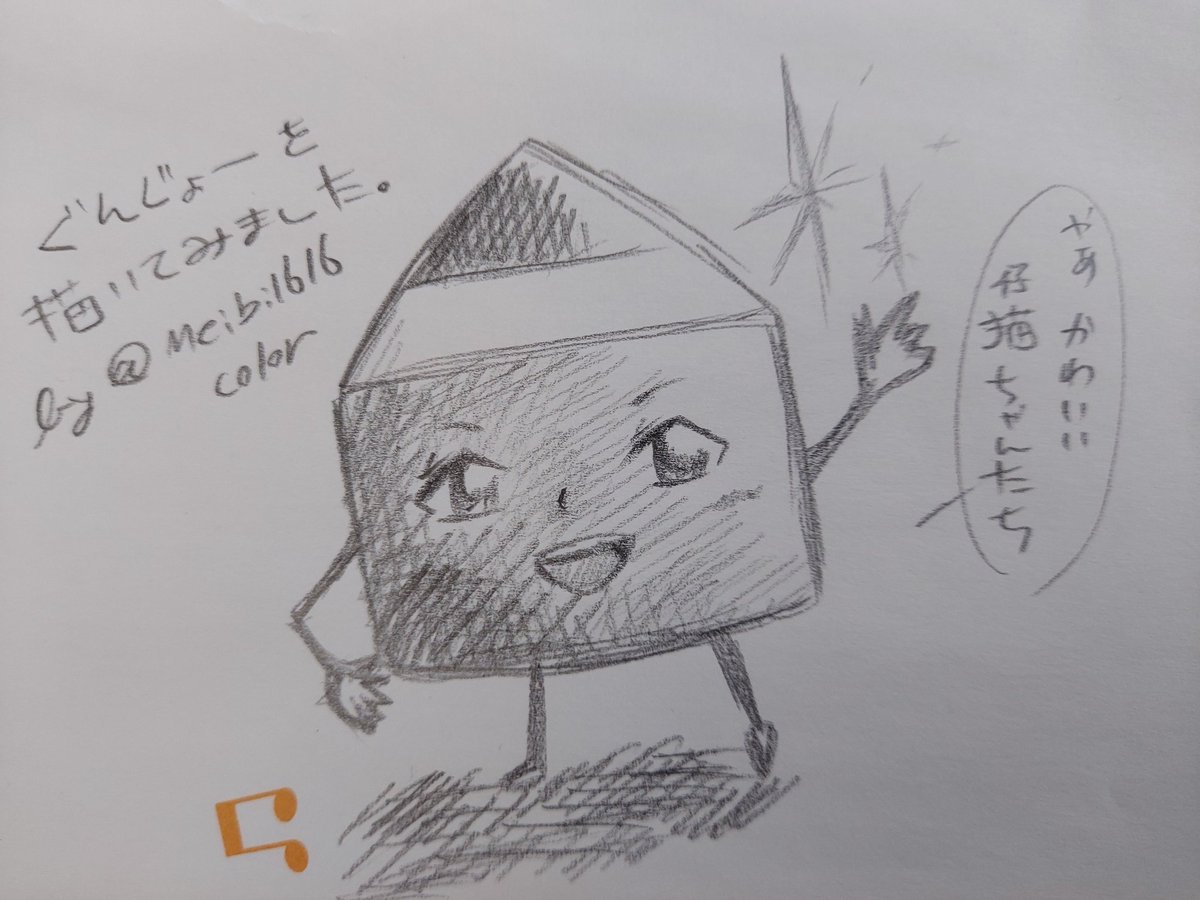 ぐんじょーを
描いてみました。
by @meibi1616
color
やあ かわいい
仔猫ちゃんたち